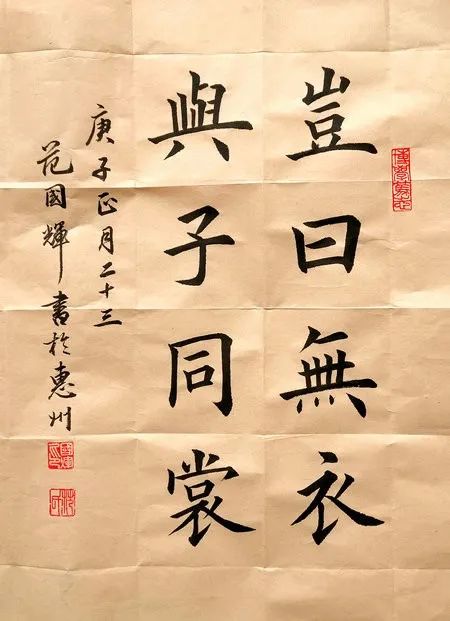 豈曰無衣
與子同裳
庚子正月二十三
范國輝書於惠州